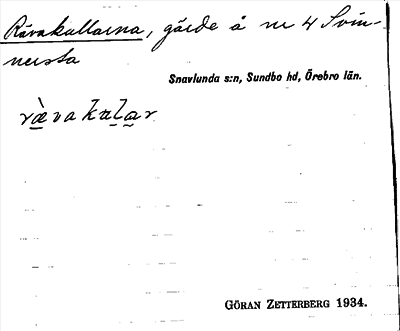 Rävakullarna, gärde å nr 4 Svin-
nersta
Snavlunda s:n, Sundbo hd, Örebro län.
rǜvakular
GÖRAN ZETTERBERG 1934.